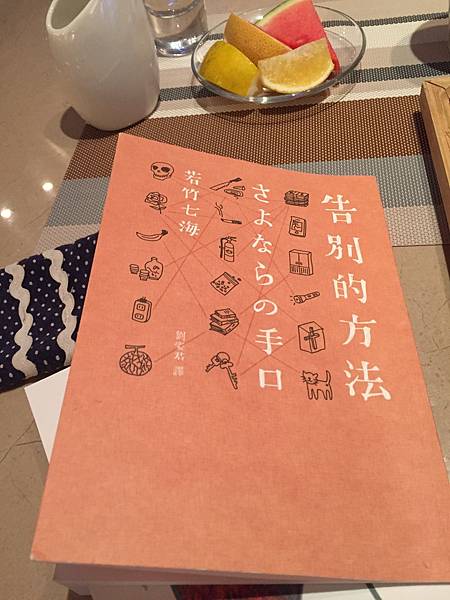 告別的方法
さよならの手口
若竹七海
劉姿君 譯